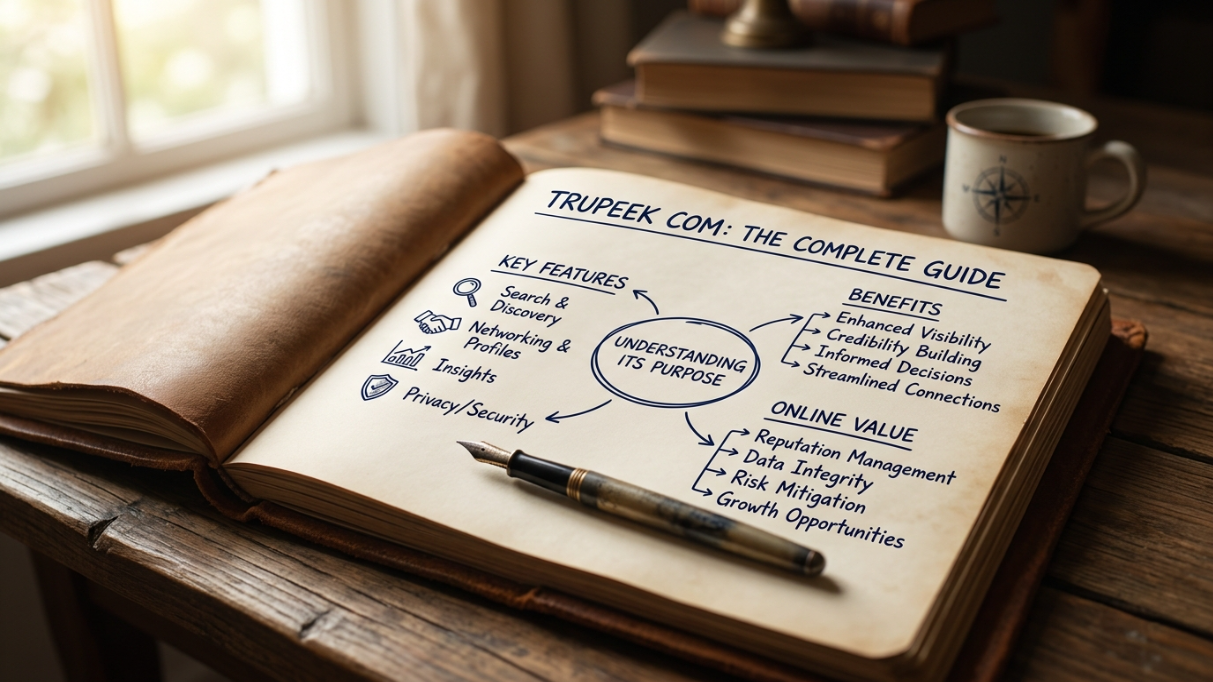 TRUPEEK COM: THE COMPLETE GUIDE
KEY FEATURES
Search &
Discovery
Networking &
Profiles
Insights
Privacy/Security
UNDERSTANDING
ITS PURPOSE
BENEFITS
Enhanced Visibility
Credibility Building
Informed Decisions
Streamlined Connections
ONLINE VALUE
Reputation Management
Data Integrity
Risk Mitigation
Growth Opportunities
N
W
E